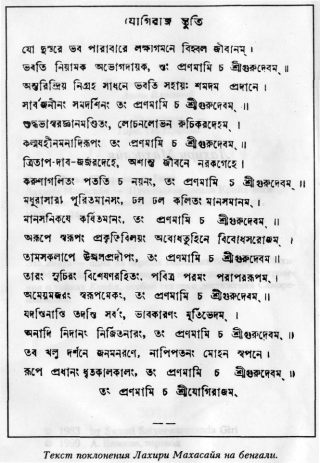 যোগিরাজ স্তুতি
যো দুস্তরে ভব পারাবারে লক্ষ্যগমনে বিহ্বল জীবানাম্ ।
ভবতি নিয়ামক অভোগদায়ক, তং প্রণমামি চ শ্রীগুরুদেবম্ ॥
অন্তরিন্দ্রিয় নিগ্রহ সাধনে ভবতি সহায়ঃ শমদম প্রদানে ।
সার্বজনীনং সমদর্শিনং তং প্রণমামি চ শ্রীগুরুদেবম্ ॥
শুদ্ধভাস্বরজ্ঞানমণ্ডিতং, লোচনলোভন রুচিকরদেহম্ ।
কল্মষহীনমনাদিরূপং তং প্রণমামি চ শ্রীগুরুদেবম্ ॥
ত্রিতাপ-দাব-জর্জরদেহে, অশান্ত জীবনে নরকগেহে ।
করুণাগলিতং পততি চ নয়নং, তং প্রণমামি চ শ্রীগুরুদেবম্ ॥
মধুরাসারং পুরিতমানসং, ঢল ঢল কলিতং মানসমানম্ ।
মানসনিকষে কর্ষিতমানং, তং প্রণমামি চ শ্রীগুরুদেবম্ ॥
অরূপে স্বরূপং প্রকৃতিবিলয়ং অবোধতুহিনে বিবোধসরোজম্ ।
তামসকলাপে উজ্জলপ্রদীপং, তং প্রণমামি চ শ্রীগুরুদেবম্ ॥
তারং সুচিরং বিশেষণরহিতং, পবিত্র পরমং পরাপররূপম্ ।
অমেয়মজরং স্বরূপমেকং, তং প্রণমামি চ শ্রীগুরুদেবম্ ॥
যদস্তিনাস্তি তদস্তি সর্বং, ভাবকারণং মূর্তিভেদম্ ।
অনাদি নিদানং নির্জিতনারং, তং প্রণমামি চ শ্রীগুরুদেবম্ ॥
তব খলু দর্শনে জনমনরণে, নাপিপতনং মোহন স্বপনে ।
রূপে প্রধানং ধৃতকালকালং, তং প্রণমামি চ শ্রীগুরুদেবম্ ॥
তং প্রণমামি চ শ্রীযোগিরাজম্
Текст поклонения Лахири Махасайя на бенгали.